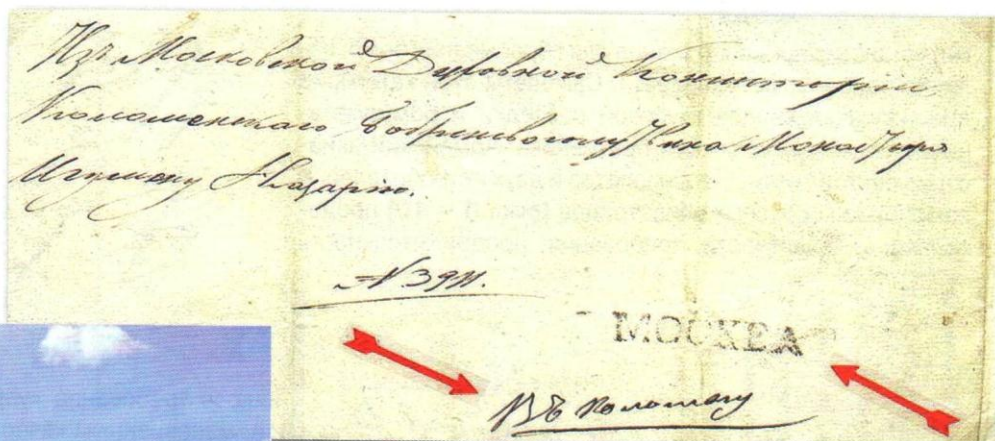 Изъ Московской Духовной Консисторіи
Коломенскаго Бобренева Монастыря
Игумену Назарію.
№ 3911.
МОСКВА
Въ Коломну